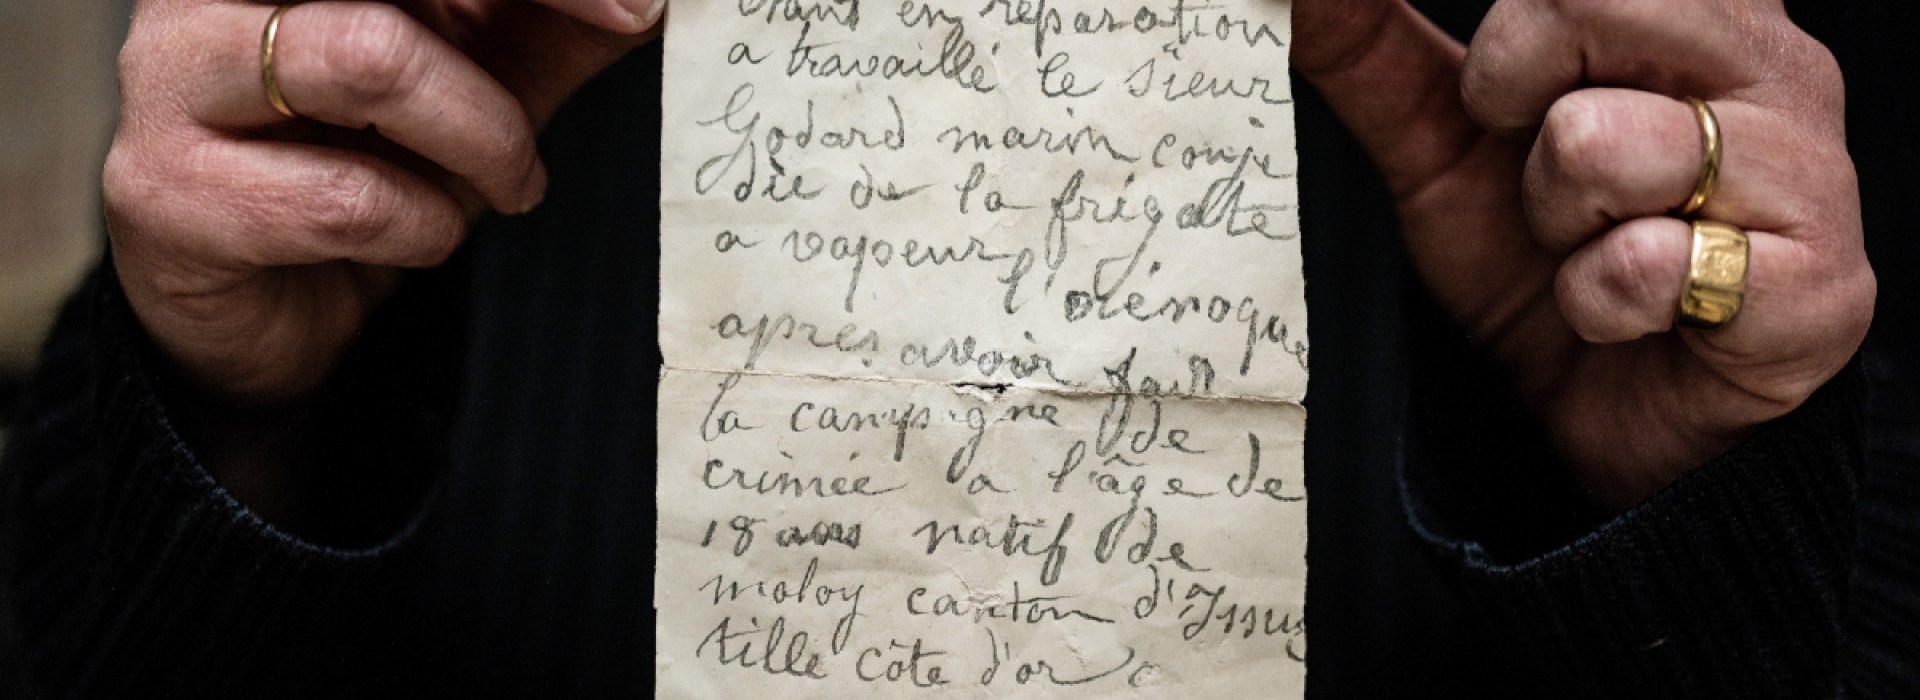 étant en réparation
a travaillé le sieur
Godard marin conjé
dié de la frégate
a vapeur
l'orénoque
après avoir fait
la campagne de
crimée a l'âge de
18 ans natif de
moloy canton d'Issu
tille côte d'or